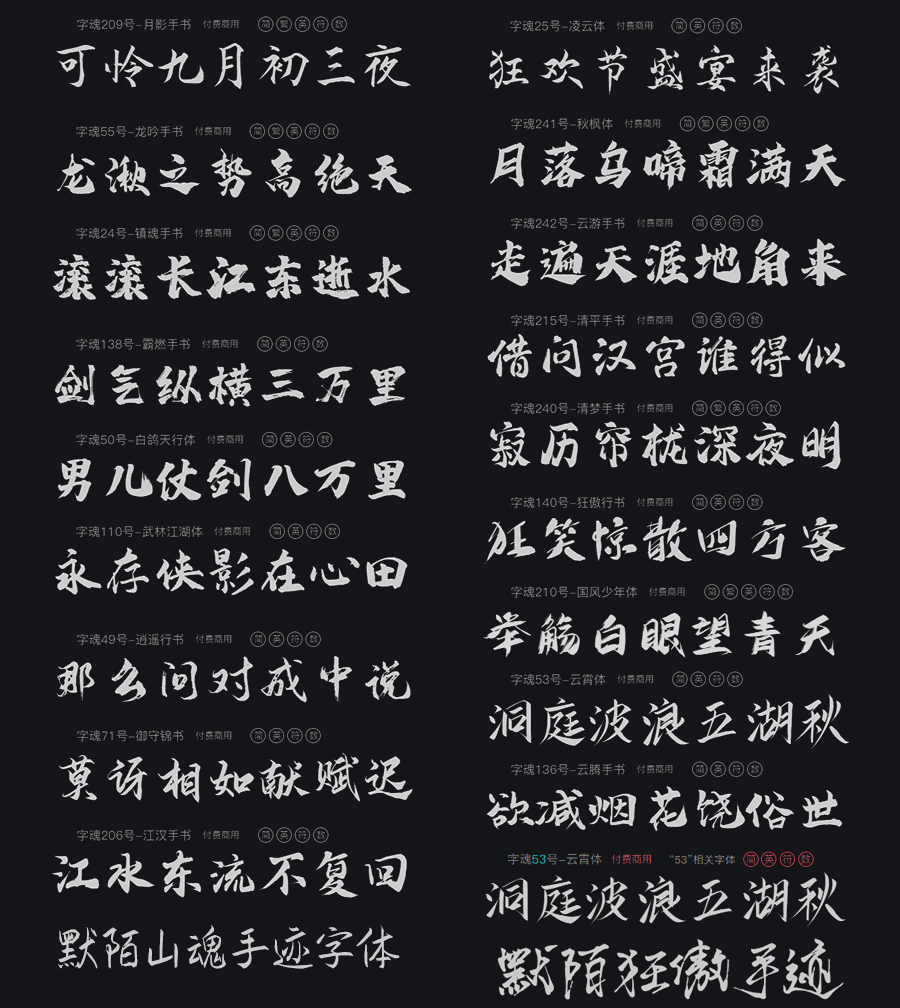 字魂209号-月影手书 付费商用 简 繁 英 符 数
可怜九月初三夜
字魂55号-龙吟手书 付费商用 简 繁 英 符 数
龙湫之势高绝天
字魂24号-镇魂手书 付费商用 简 繁 英 符 数
滚滚长江东逝水
字魂138号-霸燃手书 付费商用 简 英 符 数
剑气纵横三万里
字魂50号-白鸽天行体 付费商用 简 英 符 数
男儿仗剑八万里
字魂110号-武林江湖体 付费商用 简 英 符 数
永存侠影在心田
字魂49号-逍遥行书 付费商用 简 英 符 数
那么问对成中说
字魂71号-御守锦书 付费商用 简 英 符 数
莫讶相如献赋迟
字魂206号-江汉手书 付费商用 简 英 符 数
江水东流不复回
默陌山魂手迹字体
字魂25号-凌云体 付费商用 简 英 符 数
狂欢节盛宴来袭
字魂241号-秋枫体 付费商用 简 繁 英 符 数
月落乌啼霜满天
字魂242号-云游手书 付费商用 简 英 符 数
走遍天涯地角来
字魂215号-清平手书 付费商用 简 英 符 数
借问汉宫谁得似
字魂240号-清梦手书 付费商用 简 繁 英 符 数
寂历帘栊深夜明
字魂140号-狂傲行书 付费商用 简 英 符 数
狂笑惊散四方客
字魂210号-国风少年体 付费商用 简 繁 英 符 数
举觞白眼望青天
字魂53号-云霄体 付费商用 简 英 符 数
洞庭波浪五湖秋
字魂136号-云腾手书 付费商用 简 英 符 数
欲减烟花饶俗世
字魂53号-云霄体 付费商用 “53”相关字体 简 英 符 数
洞庭波浪五湖秋
默陌狂傲手迹